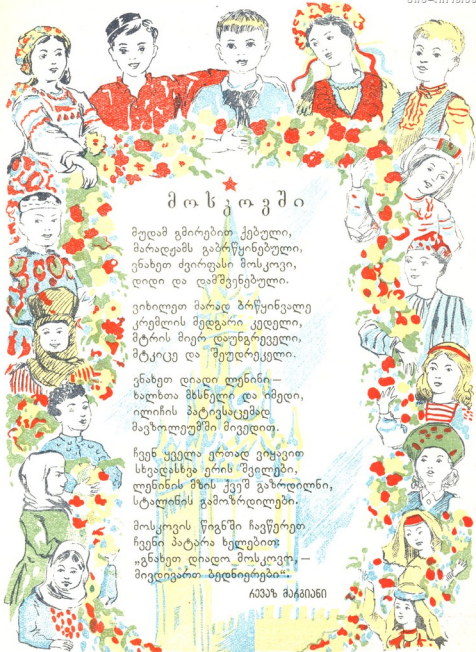 მოსკოვში
მუდამ გმირებით ქებული,
მარადჟამს გაბრწყინებული,
ვნახეთ ძვირფასი მოსკოვი,
დიდი და დამშვენებული.
ვიხილეთ მარად ბრწყინვალე
კრემლის მედგარი კედელი,
მტრის მიერ დაუნგრეველი,
მტკიცე და შეუდრეკელი.
ვნახეთ დიადი ლენინი —
ხალხთა მხსნელი და იმედი,
ილიჩის პატივსაცემად
მავზოლეუმში მივედით.
ჩვენ ყველა ერთად ვიყავით
სხვადასხვა ერის შვილები,
ლენინის მზის ქვეშ გაზრდილნი,
სტალინის გამოზრდილები.
მოსკოვის წიგნში ჩავწერეთ
ჩვენი პატარა ხელებით:
„გნახეთ დიადო მოსკოვო, —
მივდივართ ბედნიერები“.
რევაზ მარგიანი